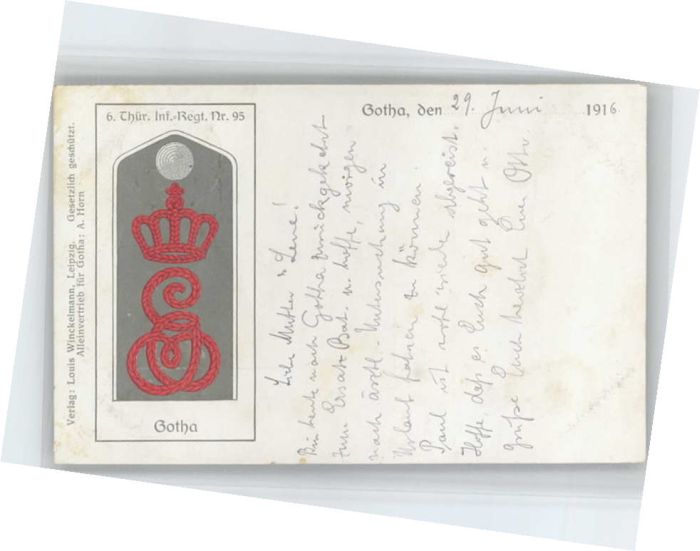 6. Thür. Inf.-Regt. Nr. 95
Gotha
Verlag: Louis Winckelmann, Leipzig. Gesetzlich geschützt.
Alleinvertrieb für Gotha: A. Horn
Gotha, den 29. Juni 1916
Liebe Mutter u. Lene!
Bin heute nach Gotha zurückgekehrt
zum Ersatz-Bat. u. hoffe, morgen
nach ärztl. Untersuchung in
Urlaub fahren zu können.
Paul ist wohl wieder abgereist.
Hoffe, daß es Euch gut geht u.
grüße Euch herzlich Euer Otto.